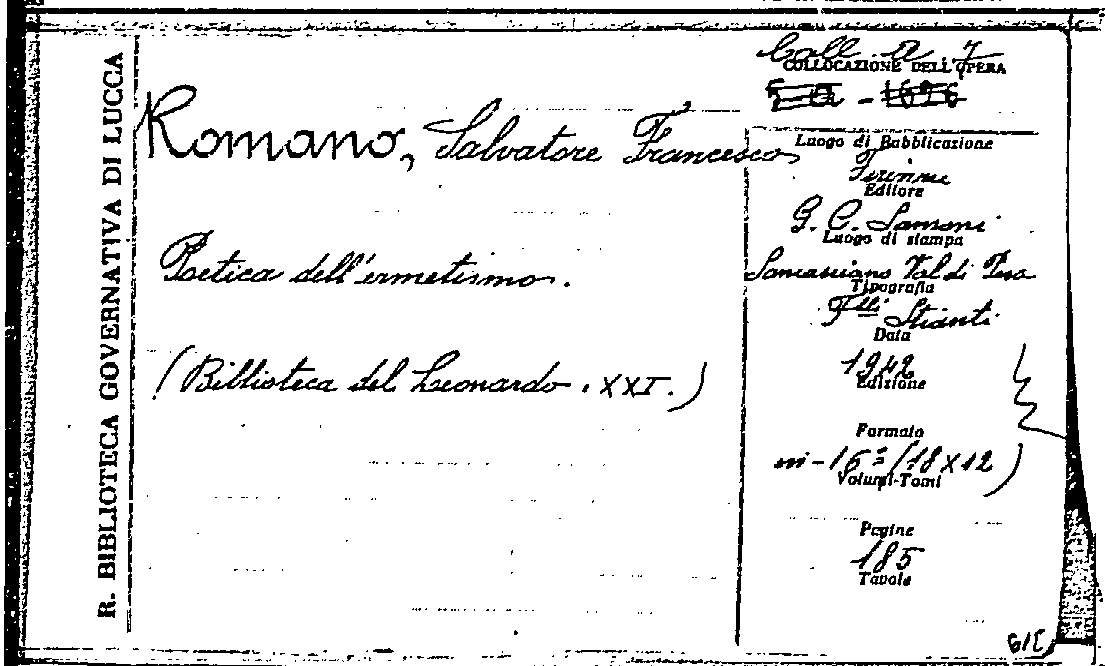 R. BIBLIOTECA GOVERNATIVA DI LUCCA
Romano, Salvatore Francesco
Poetica dell'ermetismo.
(Biblioteca del Leonardo. XXI.)
Coll. A 7
COLLOCAZIONE DELL'OPERA
Luogo di Pubblicazione
Firenze
Editore
G. C. Sansoni
Luogo di stampa
Sancasciano Val di Pesa
Tipografia
F.lli Stianti
Data
1942
Edizione
Formato
in-16º (18 X 12)
Volumi-Tomi
Pagine
185
Tavole